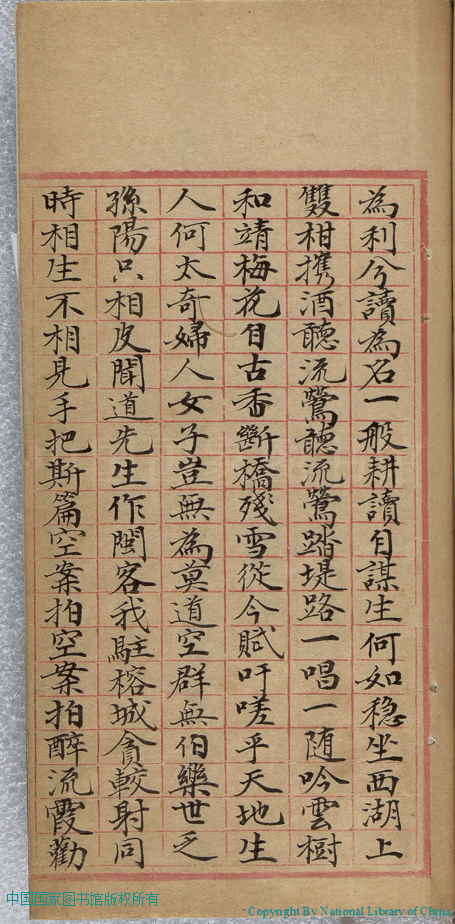 為利兮讀為名一般耕讀自謀生何如穩坐西湖上
雙柑携酒聽流鶯聽流鶯踏堤路一唱一随吟雲樹
和靖梅花自古香斷橋殘雪從今賦吁嗟乎天地生
人何太奇婦人女子豈無為莫道空群無伯樂世乏
孫陽只相皮聞道先生作閩客我駐榕城貪較射同
時相生不相見手把斯篇空案拍空案拍醉流霞勸
中国国家图书馆版权所有
Copyright By National Library of China